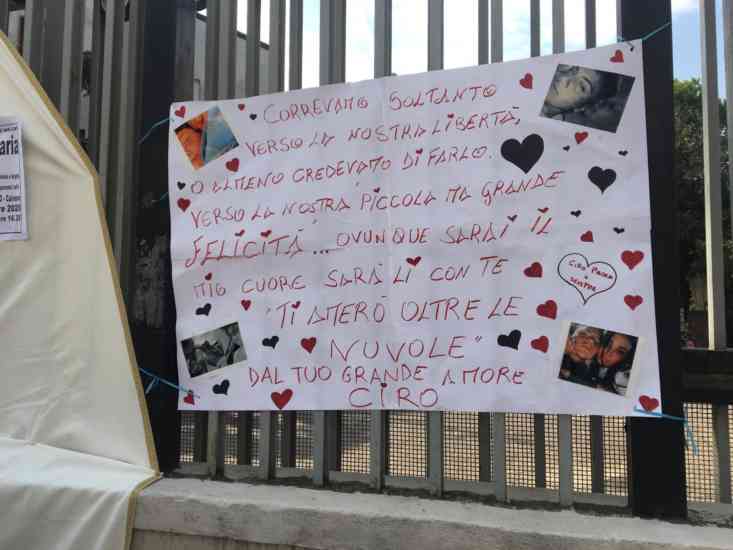 aria
2020
CORREVAMO SOLTANTO
VERSO LA NOSTRA LIBERTÀ,
O ALMENO CREDEVAMO DI FARLO.
VERSO LA NOSTRA PICCOLA MA GRANDE
FELICITÀ... OVUNQUE SARAI IL
MIO CUORE SARÀ LÌ CON TE
"TI AMERÒ OLTRE LE
NUVOLE"
DAL TUO GRANDE AMORE
CIRO
CIRO PAOLA
X
SEMPRE